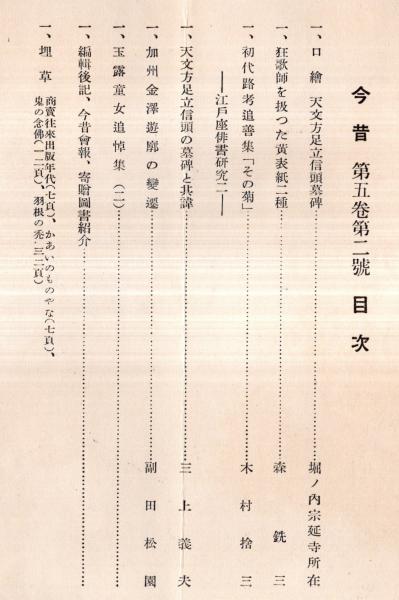 今昔 第五卷第二號 目次
一、口繪 天文方足立信頭墓碑……堀ノ內宗延寺所在
一、狂歌師を扱つた黃表紙二種……森銑三
一、初代路考追善集「その菊」……木村捨三
――江戶座俳書硏究二――
一、天文方足立信頭の墓碑と其諱……三上義夫
一、加州金澤遊廓の變遷……副田松園
一、玉露童女追悼集(二)……
一、編輯後記、今昔會報、寄贈圖書紹介……
一、埋草 商賣往來出版年代(七頁)、かあいのものやな(七頁)、
鬼の念佛(一二頁)、羽根の禿(三二頁)